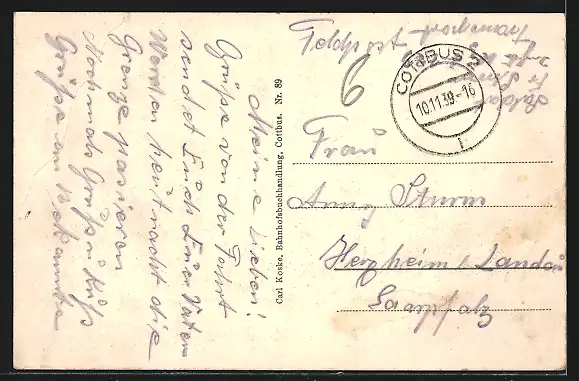 Meine Lieben!
Grüße von der Fahrt
sendet Euch Euer Vater
Werden heut nacht die
Grenze pasieren
Nochmals Gruß u. Kuß
Grüße an Bekannte
Carl Koske, Bahnhofsbuchhandlung, Cottbus. Nr. 89
Feldpost
6
COTTBUS 2
10.11.39.-16
i
Frau
Anna Sturm
Herxheim / Landau
Saarpfalz